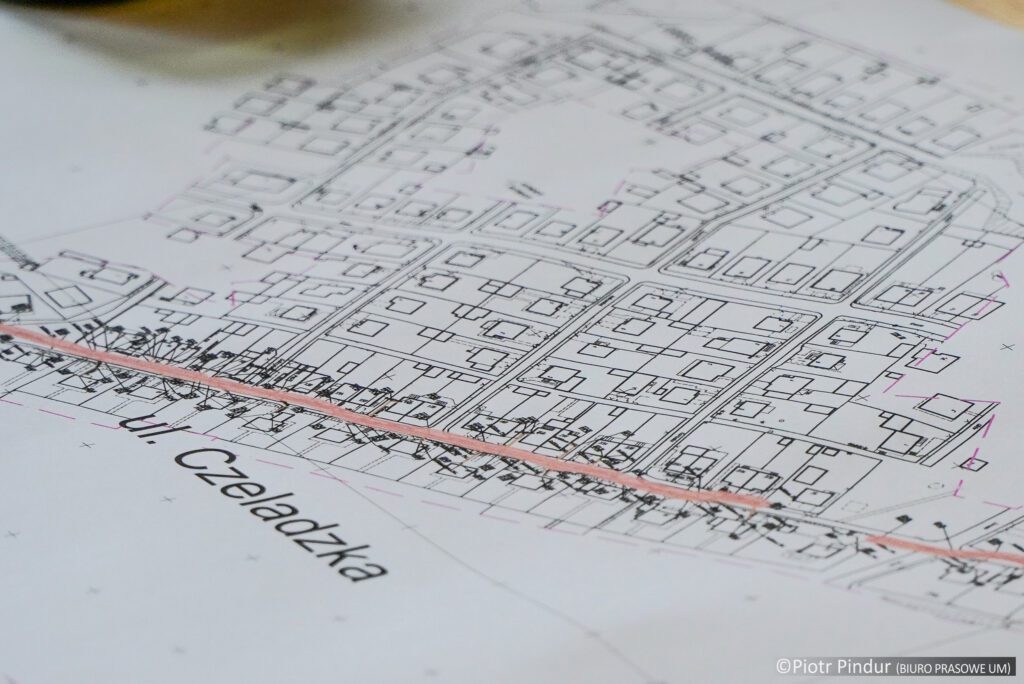 ul. Czeladzka
©Piotr Pindur (BIURO PRASOWE UM)